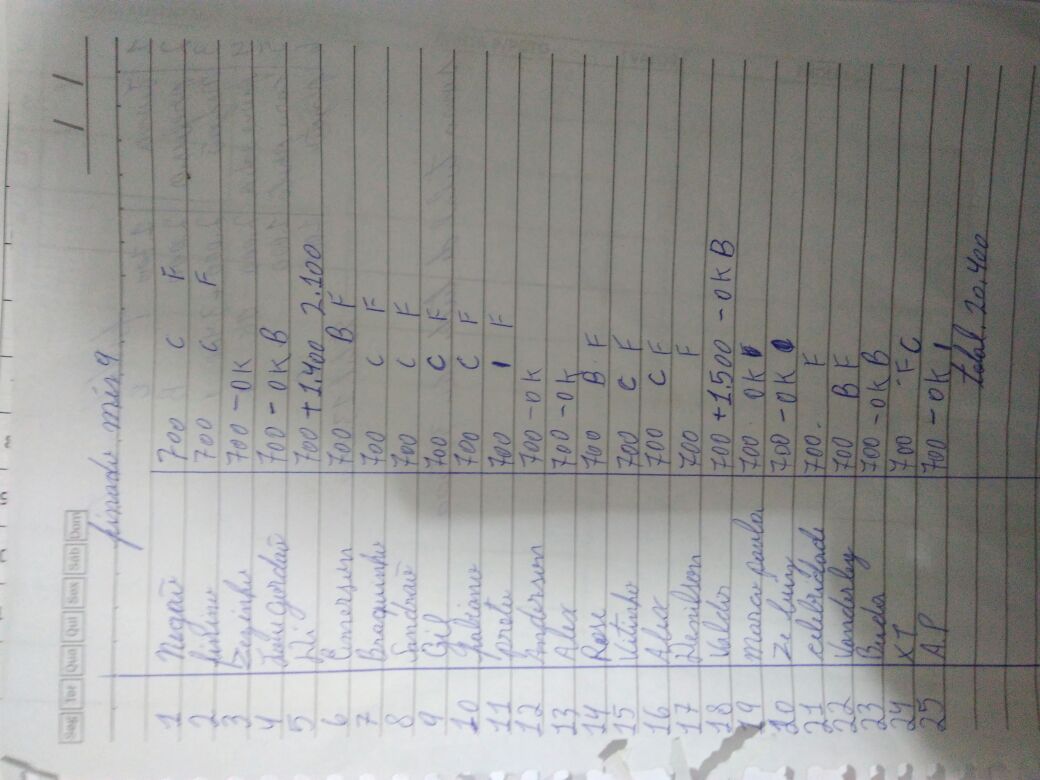 Seg Ter Qua Qui Sex Sáb Dom
/ /
mês 9
1 Negão 700 C F
2 700 C F
3 Zezinho 700 - OK
4 700 - OK B
5 Di 700 + 1.400 2.100
6 Emerson 700 B F
7 Braguinha 700 C F
8 Sandrão 700 C F
9 Gil 700 C F
10 Fabiano 700 C F
11 preto 700 F
12 Anderson 700 - OK
13 Alex 700 - OK
14 Rose 700 B F
15 Vitinho 700 C F
16 Alex 700 C F
17 Denilson 700 F
18 Valdo 700 + 1.500 - OK B
19 Marco paulo 700 OK
20 Zé 700 - OK
21 celebridade 700. F
22 Vanderley 700 B F
23 Buda 700 - OK B
24 XT 700 - F C
25 AP 700 - OK
total. 20.400